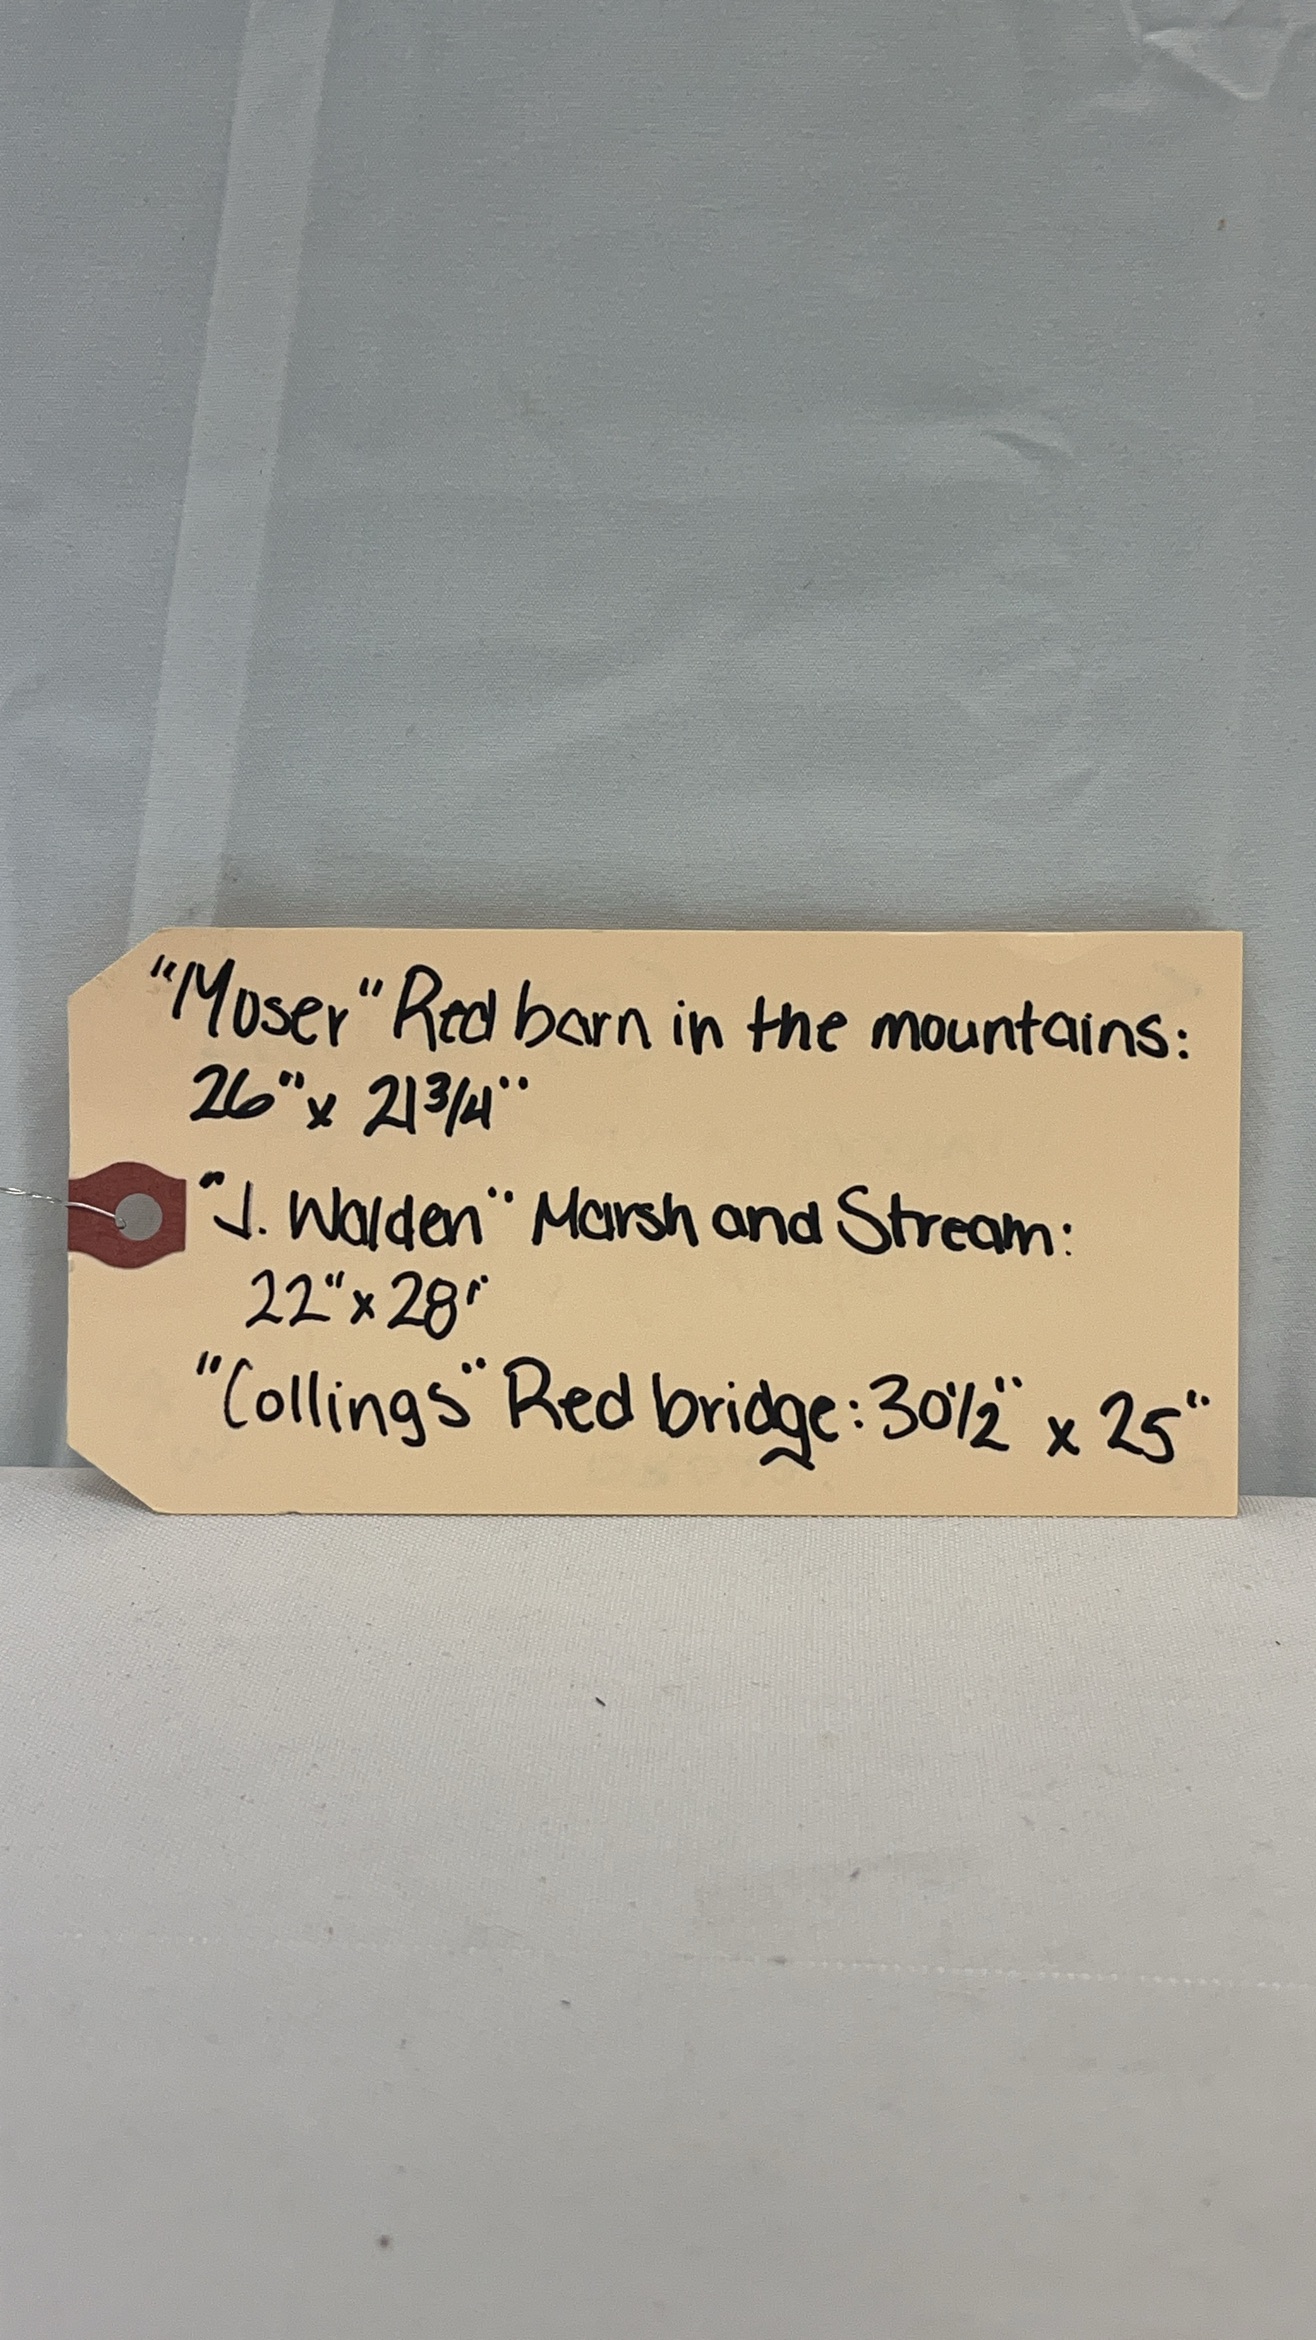 "Moser" Red barn in the mountains:
26" x 21 3/4"
"J. Walden" Marsh and Stream:
22" x 28"
"Collings" Red bridge: 30 1/2" x 25"